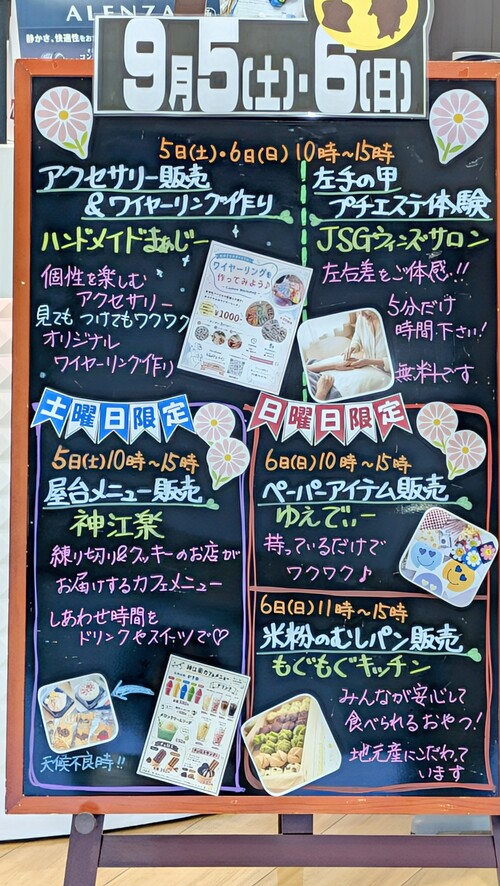 ALENZA
9月5(土)・6(日)
5日(土)・6日(日) 10時〜15時
アクセサリー販売
&ワイヤーリング作り
ハンドメイドまぁじー
個性を楽しむ
アクセサリー
見ても つけてもワクワク
オリジナル
ワイヤーリング作り
ワイヤーリングを
作ってみよう♪
¥1000-
左手の甲
プチエステ体験
JSGウィンズサロン
左右差をご体感!!
5分だけ
時間下さい!
無料です
土曜日限定
5日(土)10時〜15時
屋台メニュー販売
神江楽
練り切り&クッキーのお店が
お届けするカフェメニュー
しあわせ時間を
ドリンクやスイーツで♡
天候不良時!!
神江楽カフェメニュー
日曜日限定
6日(日)10時〜15時
ペーパーアイテム販売
ゆえでぃー
持っているだけで
ワクワク♪
6日(日)11時〜15時
米粉のむしパン販売
もぐもぐキッチン
みんなが安心して
食べられるおやつ!
地元産にこだわって
います